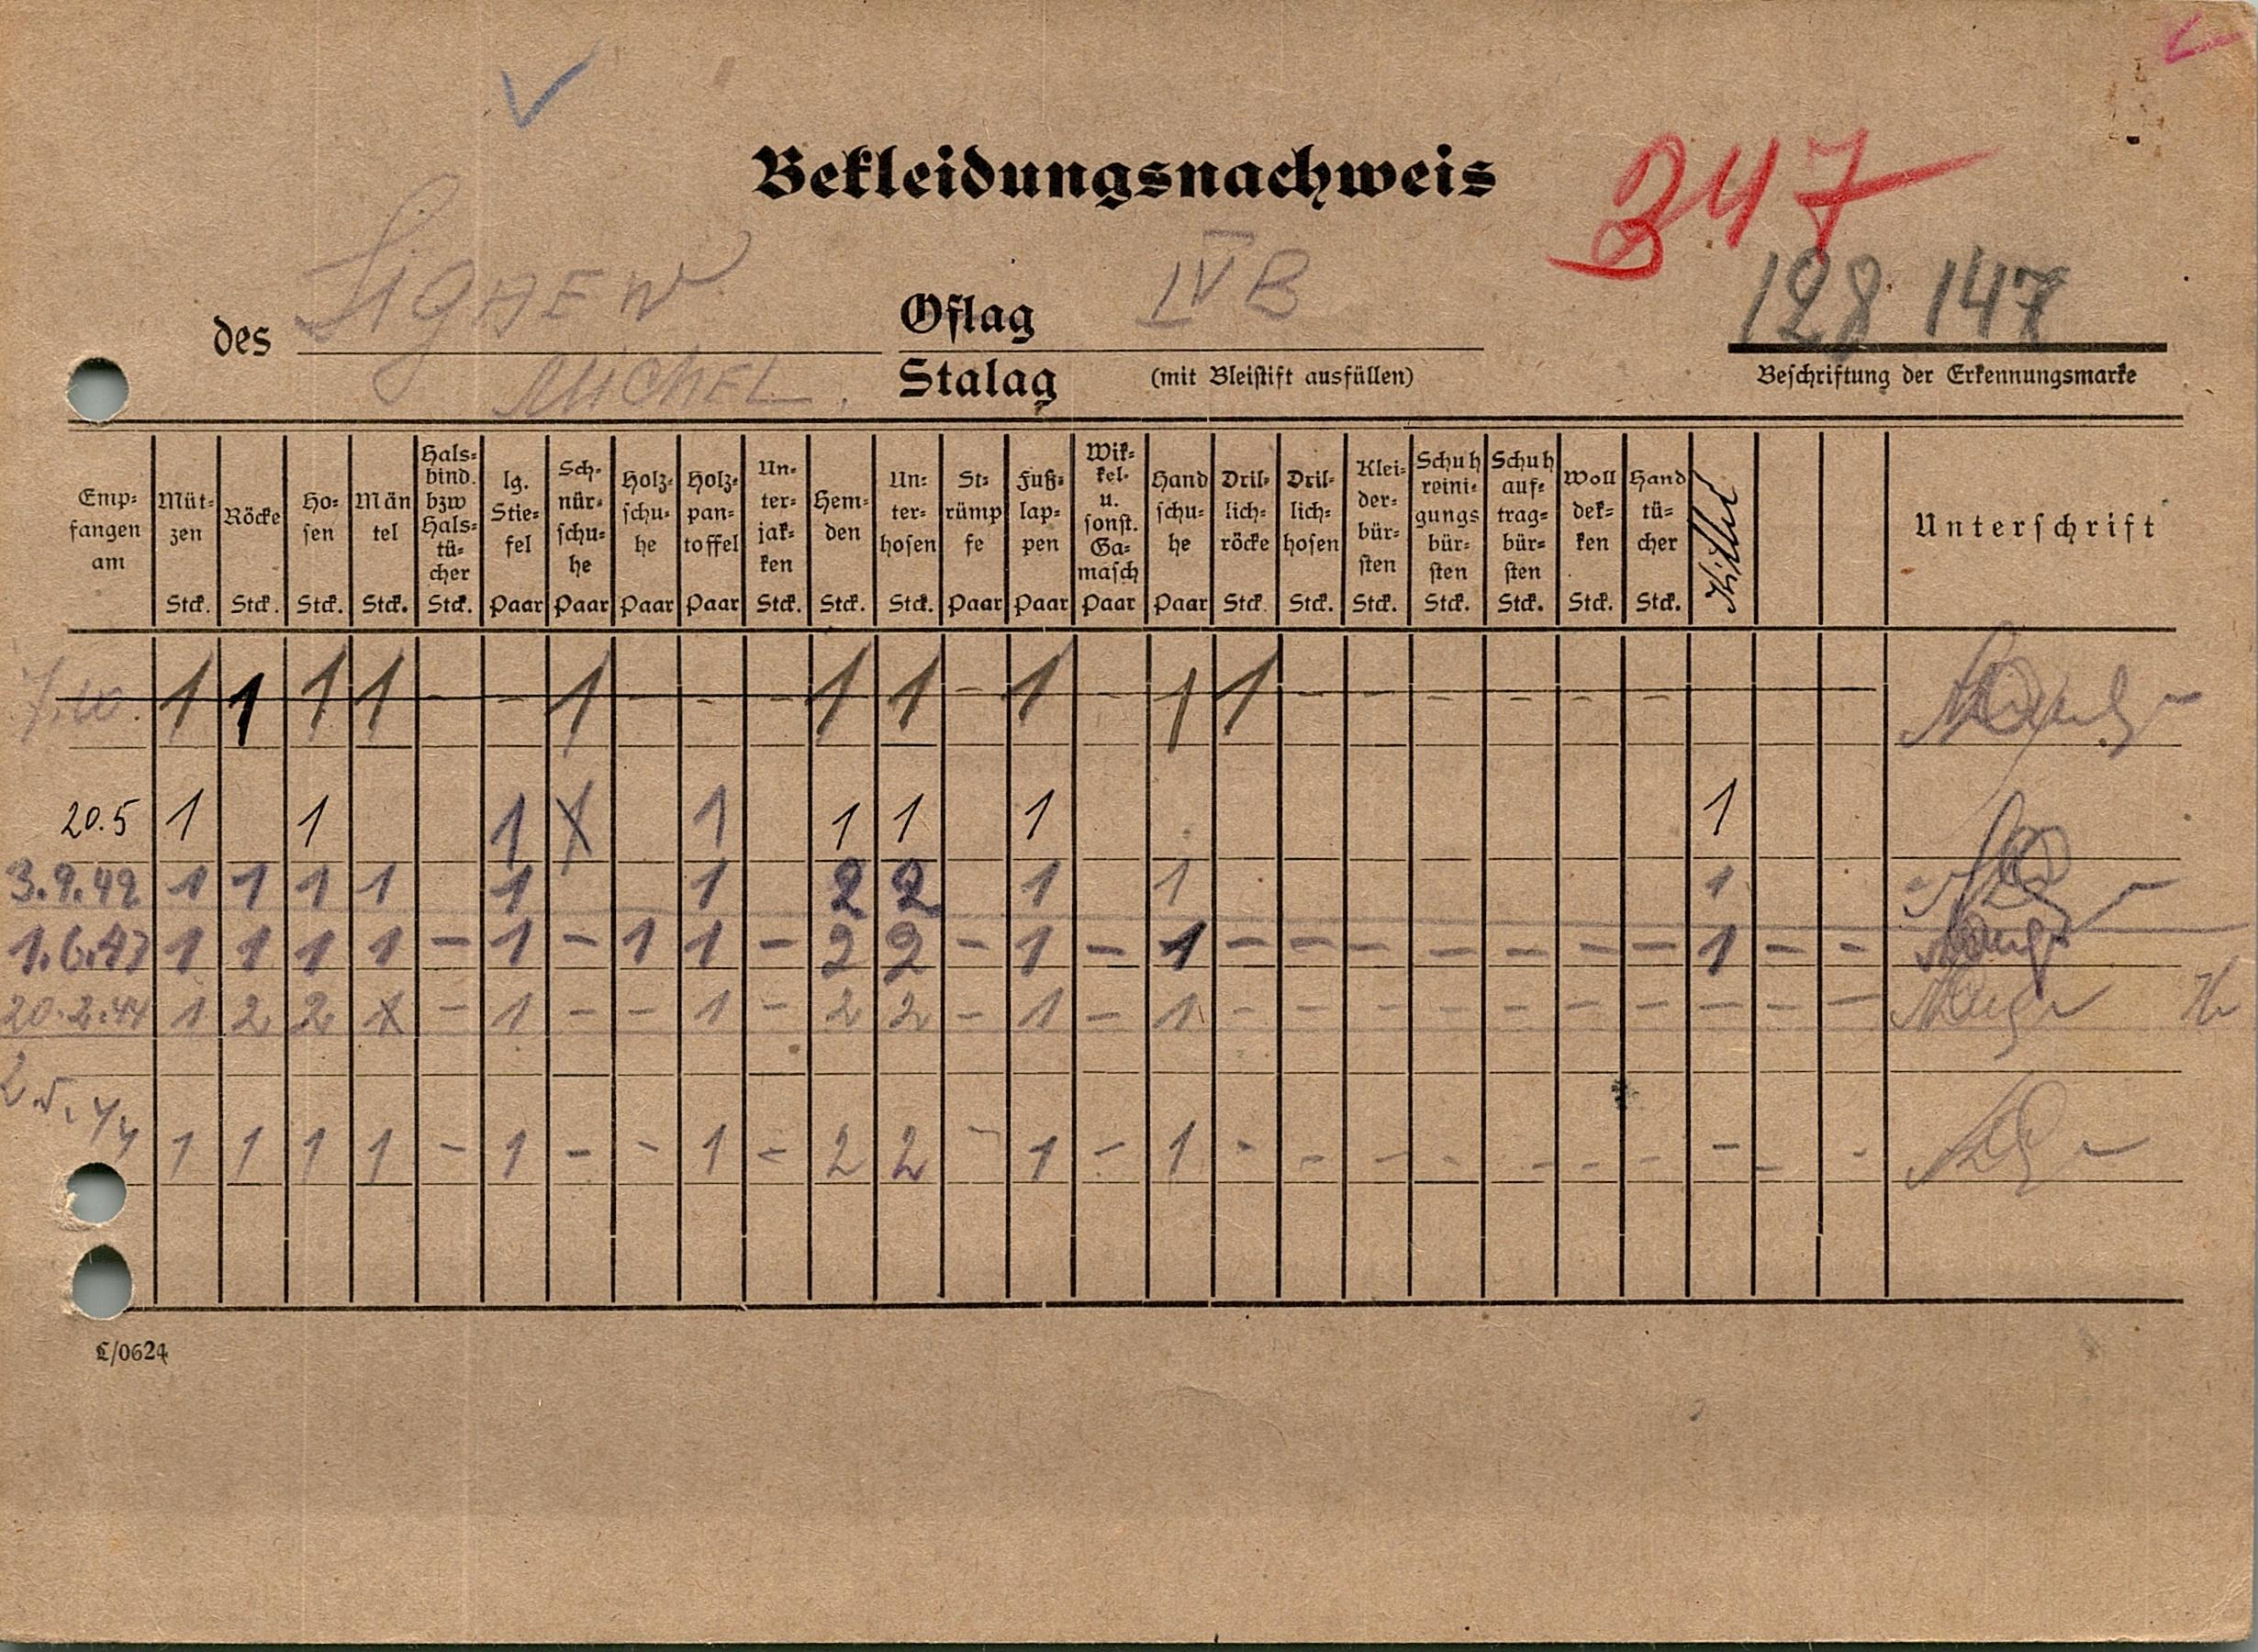 Bekleidungsnachweis
347
des Ligaew Michel.
Oflag
Stalag
IV B
(mit Bleistift ausfüllen)
128 147
Beschriftung der Erkennungsmarke
Emp- fangen am
Müt- zen Stck.
Röcke Stck.
Ho- sen Stck.
Män tel Stck.
Hals- bind. bzw Hals- tü- cher Stck.
lg. Stie- fel Paar
Sch- nür- schu- he Paar
Holz- schu- he Paar
Holz- pan- toffel Paar
Un- ter- jak- ken Stck.
Hem- den Stck.
Un- ter- hosen Stck.
St- rümp fe Paar
Fuß- lap- pen Paar
Wik- kel- u. sonst. Ga- masch Paar
Hand schu- he Paar
Dril- lich- röcke Stck.
Dril- lich- hosen Stck.
Klei- der- bür- sten Stck.
Schuh reini- gungs bür- sten Stck.
Schuh auf- trag- bür- sten Stck.
Woll dek- ken Stck.
Hand tü- cher Stck.
Kittel
Unterschrift
1 1 1 1 - - 1 - - - 1 1 - 1 - 1 1 - - - - - - -
20.5 1 1 1 X 1 1 1 1 1
3.9.42 1 1 1 1 1 1 2 2 1 1 1
1.6.43 1 1 1 1 - 1 - 1 1 - 2 2 - 1 - 1 - - - - - - - 1 - -
20.2.44 1 2 2 X - 1 - - 1 - 2 2 - 1 - 1 - - - - - - - - - -
2.5.44 1 1 1 1 - 1 - - 1 - 2 2 - 1 - 1 - - - - - - - - - -
L/0624